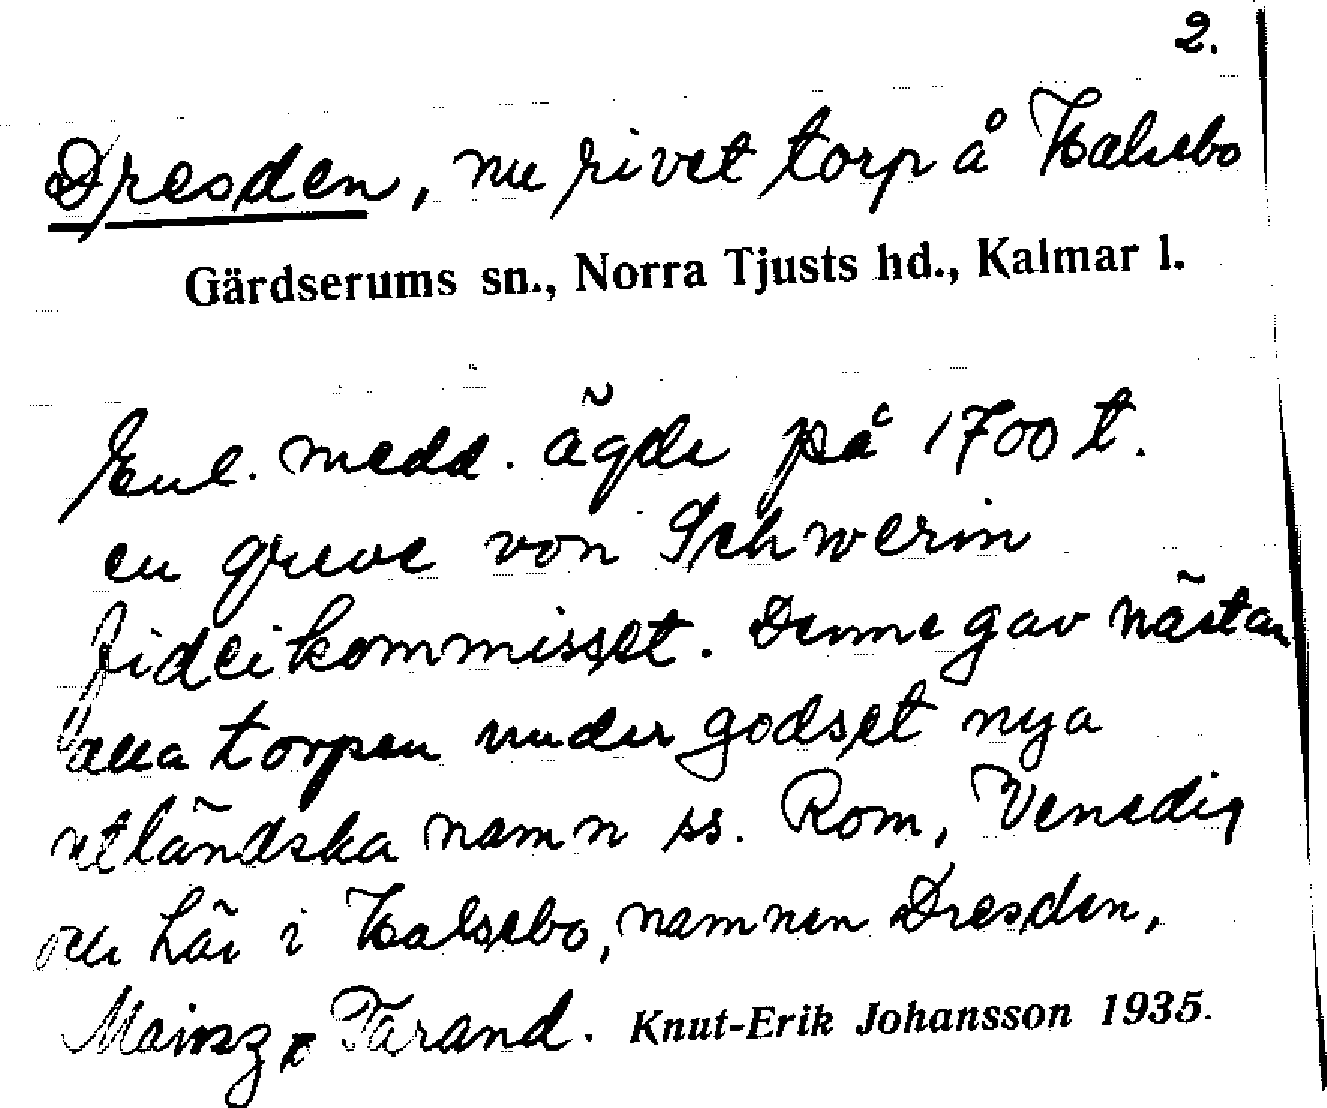 2.
Dresden, nu rivet torp å Halsebo
Gärdserums sn., Norra Tjusts hd., Kalmar l.
Enl. medd. ägde på 1700 t.
en greve von Schwerin
fideikommisset. Denne gav nästan
alla torpen under godset nya
utländska namn ss. Rom, Venedig
och här i Halsebo, namnen Dresden,
Mainz, Tarand. Knut-Erik Johansson 1935.